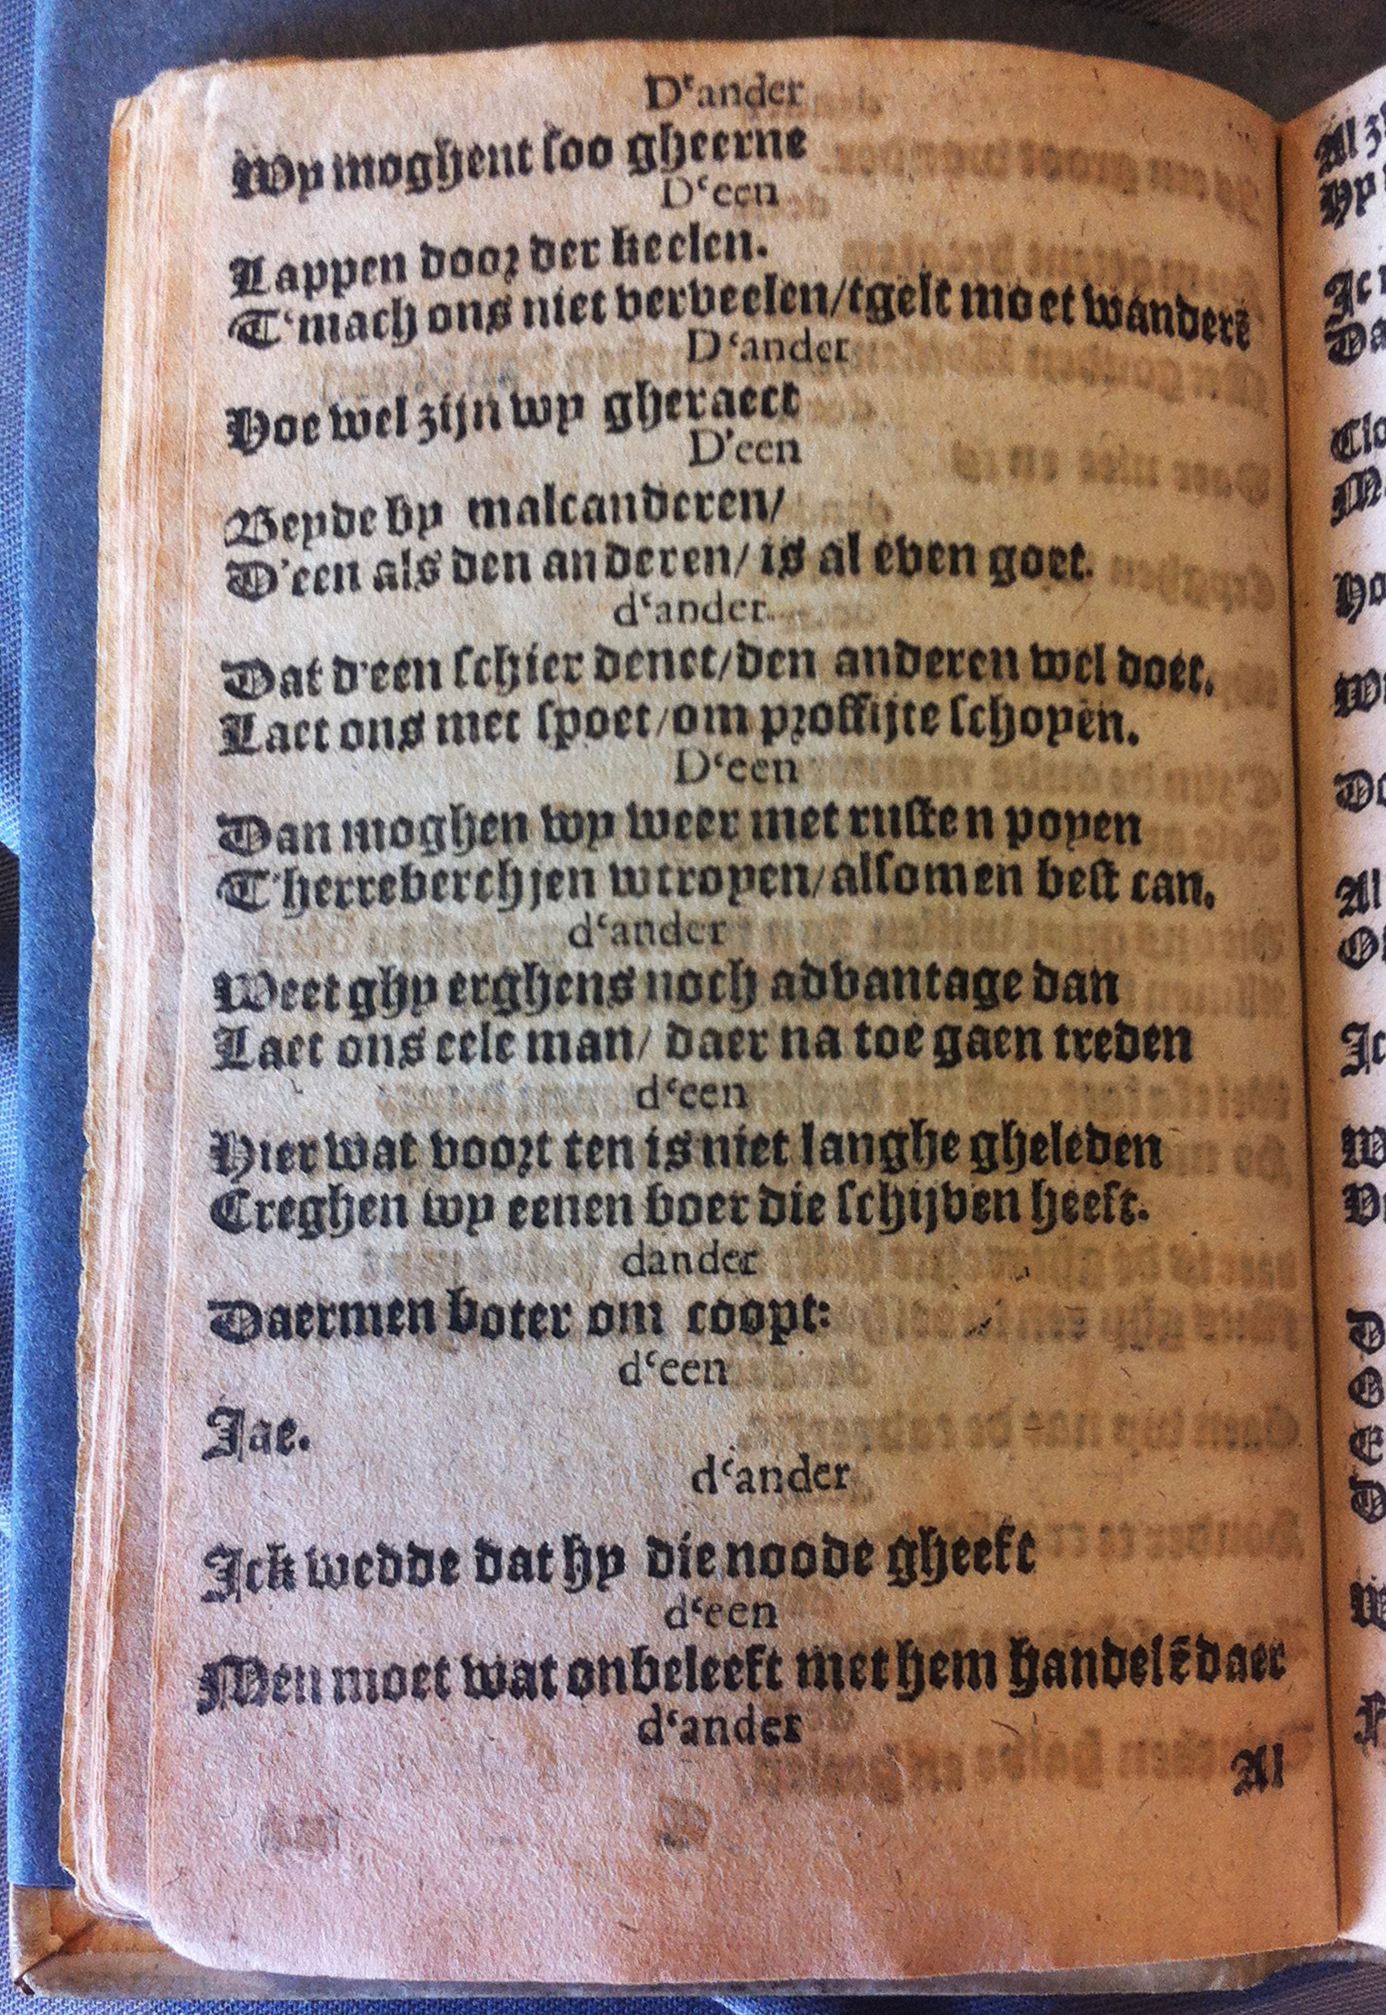 D'ander
Wy moghent soo gheerne
D'een
Lappen door der keelen.
T'mach ons niet verveelen/tgelt moet wanderē
D'ander
Hoe wel zijn wy gheraect
D'een
Beyde by malcanderen/
D'een als den anderen/ is al even goet.
d'ander
Dat d'een schier denct/den anderen wel doet.
Laet ons met spoet/om proffijte schoyen.
D'een
Dan moghen wy weer met rusten poyen
T'herreberchjen wtroyen/alsomen best can.
d'ander
Weet ghy erghens noch advantage dan
Laet ons eele man/ daer na toe gaen treden
d'een
Hier wat voort ten is niet langhe gheleden
Creghen wy eenen boer die schijven heeft.
dander
Daermen boter om coopt:
d'een
Jae.
d'ander
Ick wedde dat hy die noode gheeft
d'een
Men moet wat onbeleeft met hem handelē daer
d'ander
Al
Al
Hy
Ick
Da
Clo
Ho
Do
Al